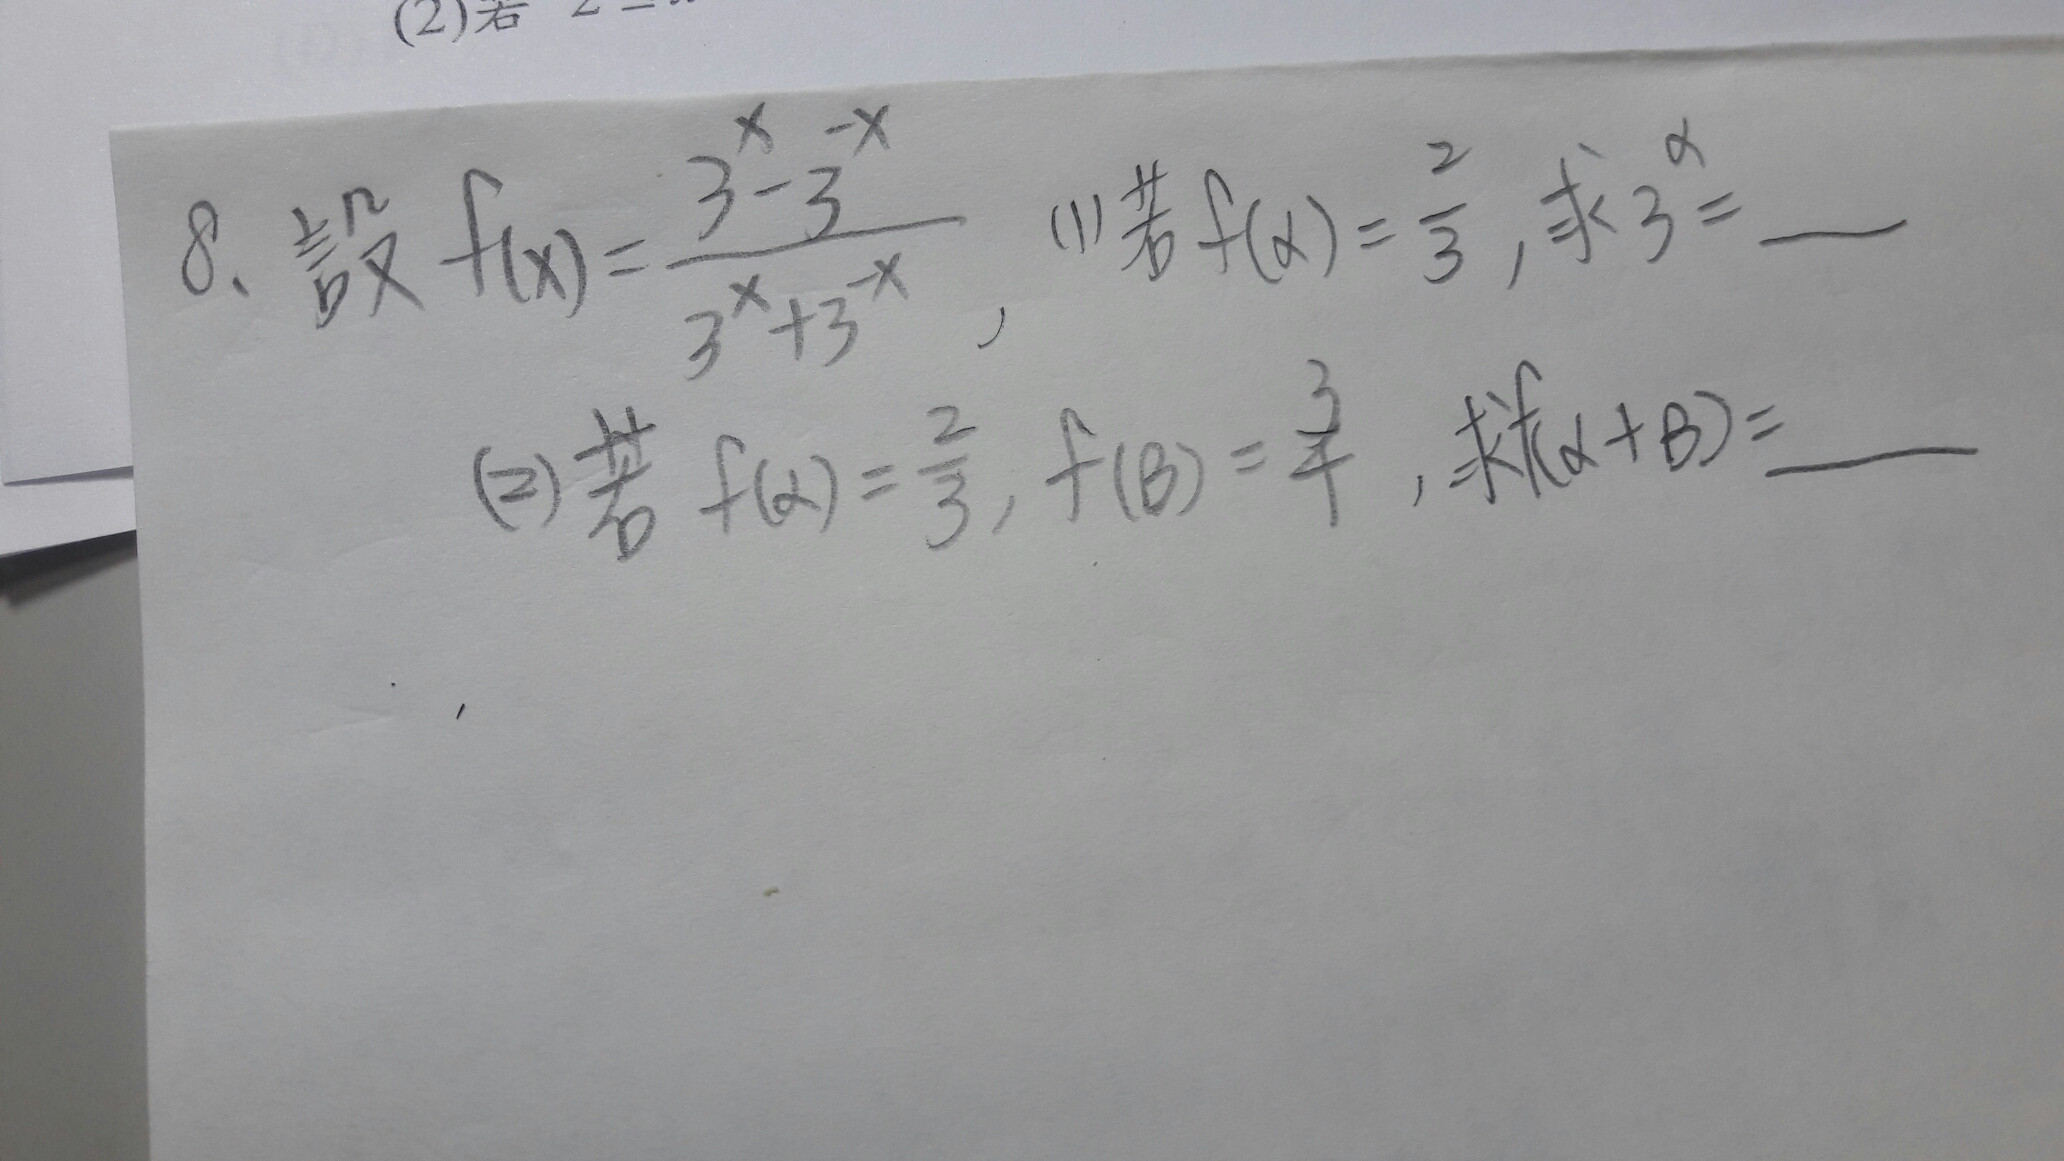 (2)若 2
8、設 f(x) = \frac{3^x - 3^{-x}}{3^x + 3^{-x}} , (1)若 f(α) = \frac{2}{3} , 求 3^α = __
(2)若 f(α) = \frac{2}{3} , f(B) = \frac{3}{4} , 求f(α+B) = __